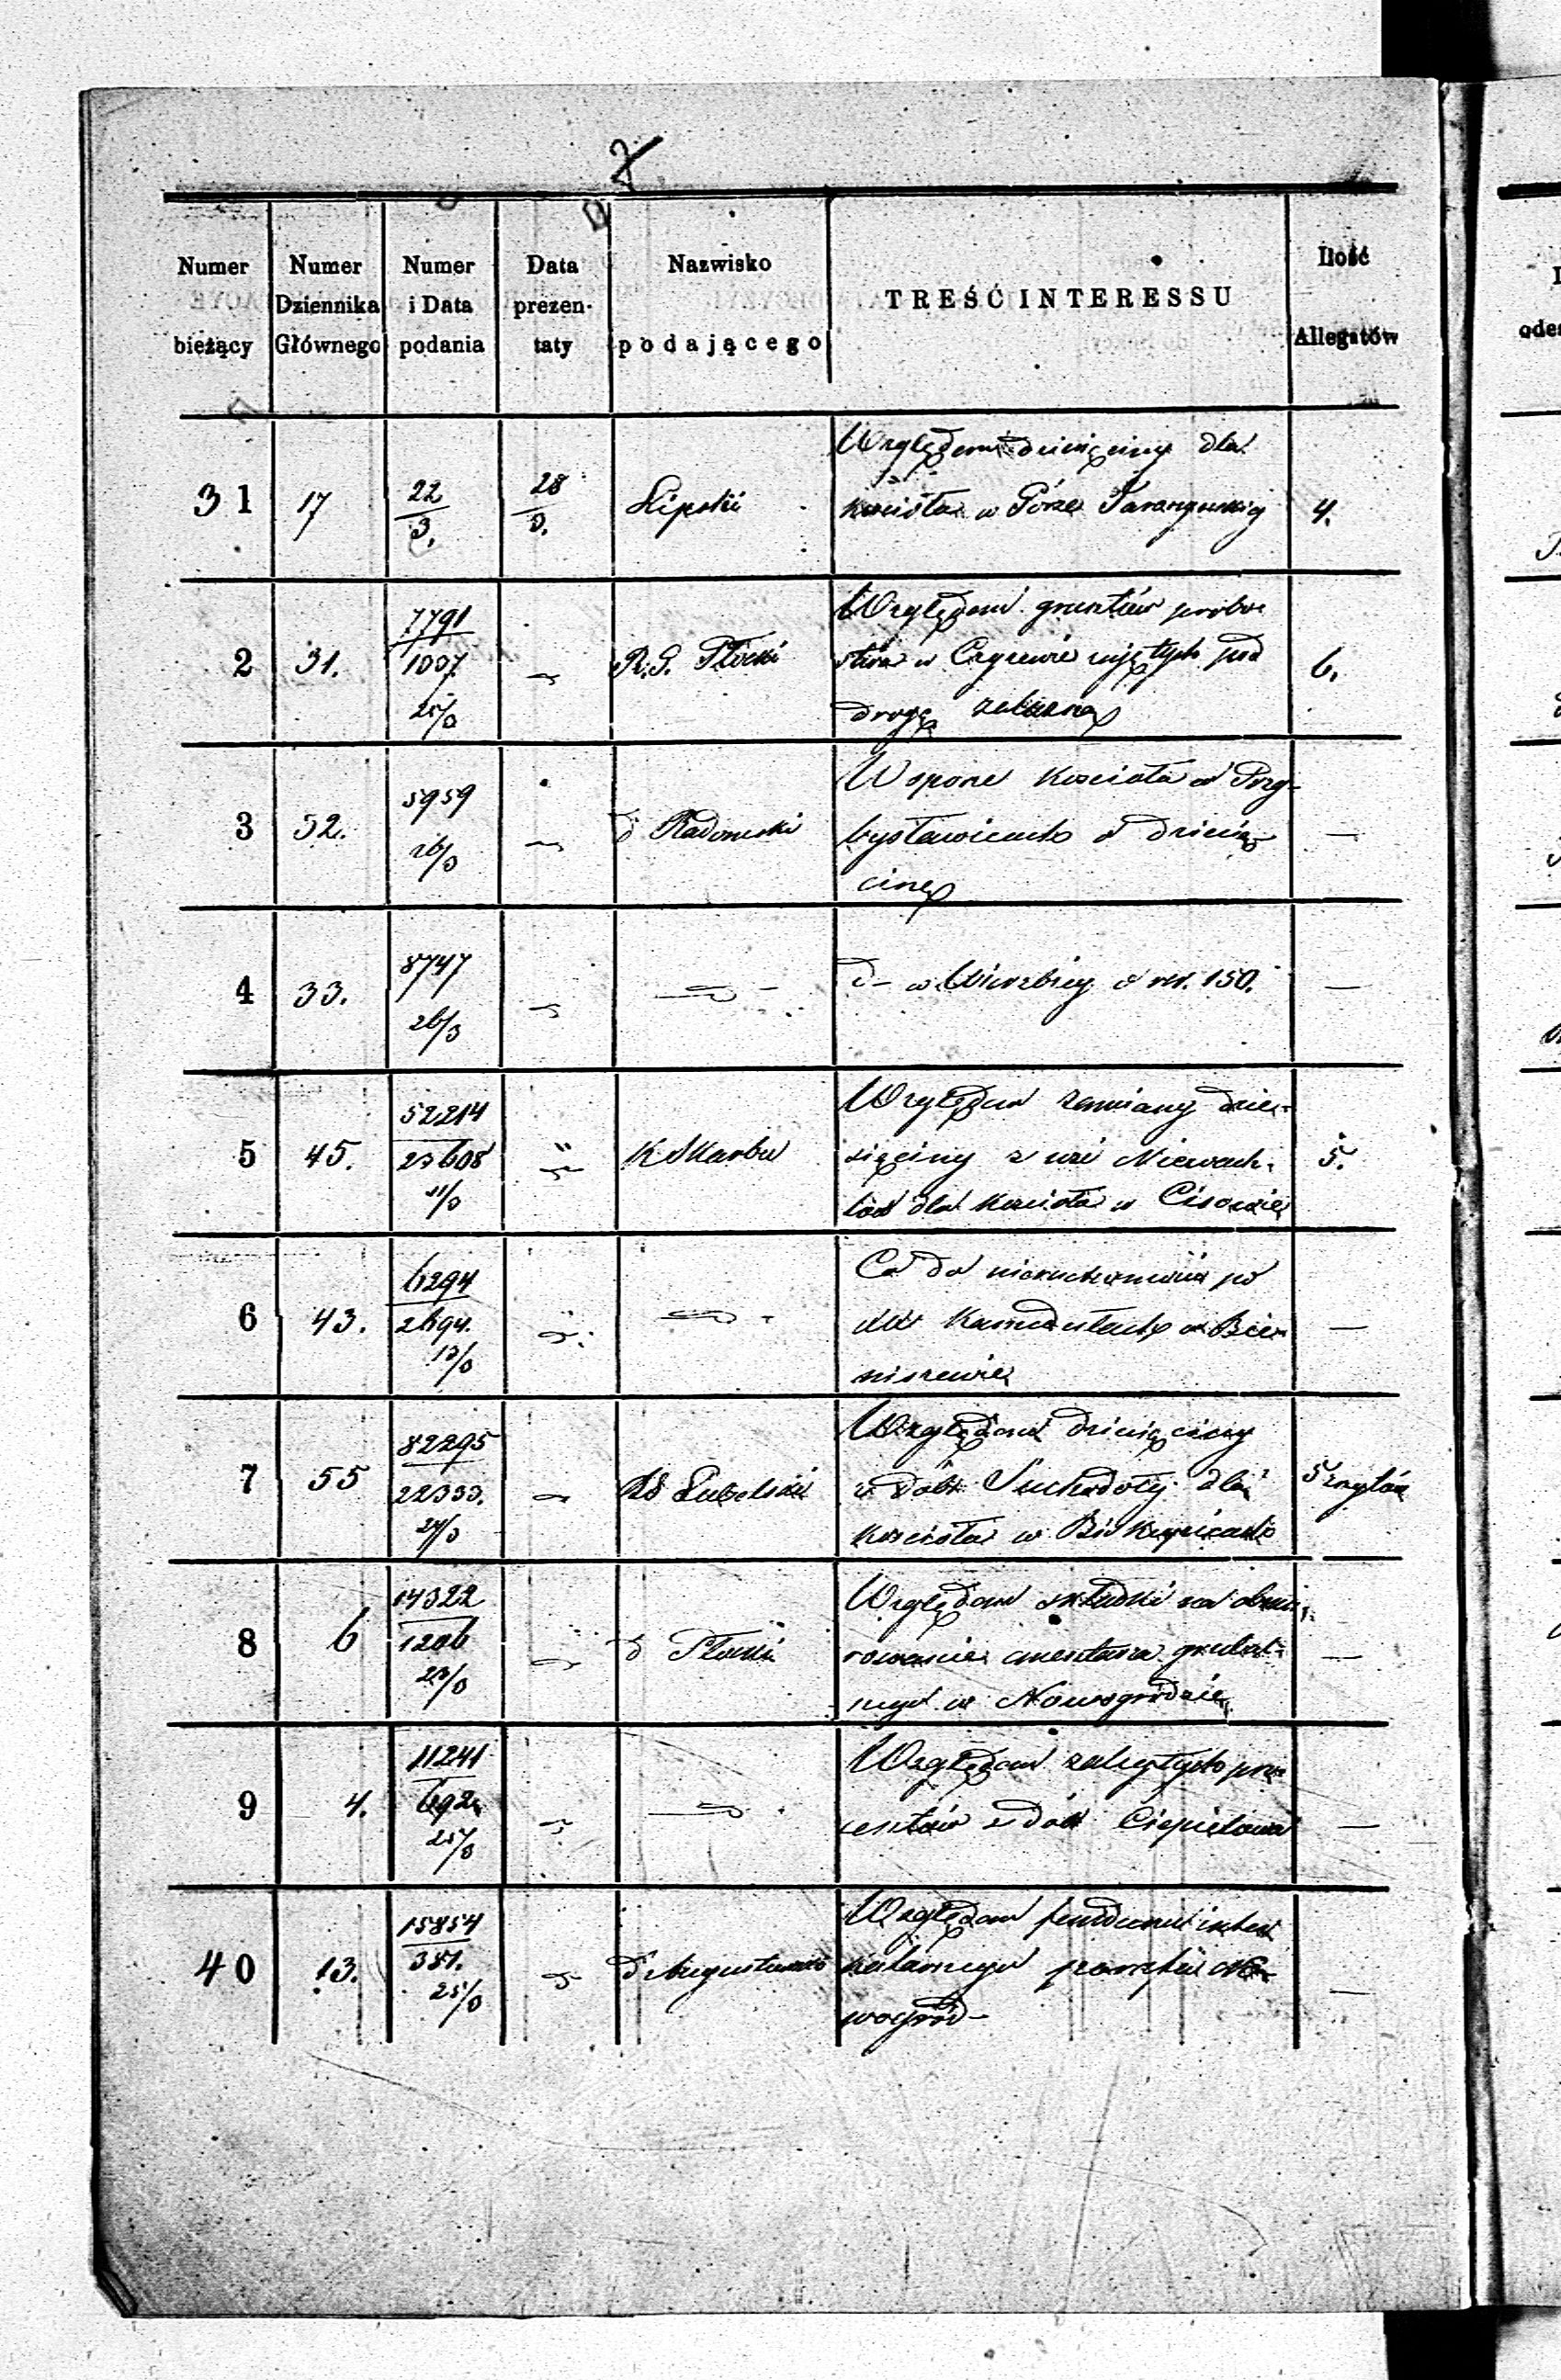 Numer bieżący
Numer Dziennika Głównego
Numer i Data podania
Data prezen- taty
Nazwisko podającego
TREŚĆ INTERESSU
Ilość Allegatów
31 17 22/3. 28/3. Lipski
Względem dziesięciny dla
kościoła w Górze
4.
2 31. 7791 1007 25/3 R. G. Płocki
Względem gruntów probo-
stwa w Czyżewie zajętych pod
drogę żelazną
6.
3 32. 5959 26/3 d Radomski
W sporze kościoła w Przy-
bysławicach o dziesię-
cinę
—
4 33. 8747 26/3
d- w Wierzbicy o rs. 150.
—
5 45. 52214 23608 11/3 K Skarbu
Względem zamiany dzie-
sięciny z wsi Niewach-
lów dla kościoła w Cisowie
5.
6 43. 6294 2694. 13/3
Co do nieruchomości po
XX Kamedułach w Bie-
niszewie
—
7 55 82295 22333. 24/3 RG Lubelski
Względem dziesięciny
z dóbr Suchodoły dla
kościoła w Biskupicach
5
8 6 14322 1206 23/3 d Płocki
Względem składki na obmu-
rowanie cmentarza grzebal-
nego w Nowogrodzie
—
9 4. 11241 692 25/3
Względem zaległych pro-
centów z dóbr Ciepielowa
—
40 13. 15854 381. 25/3 d Augustowski
Względem funduszu
parafii No-
wogród-
—